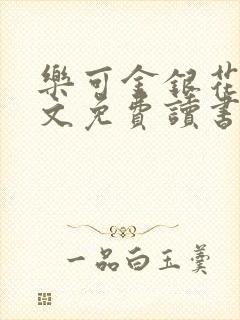 樂可金銀花
文免費讀書
一品白玉羹